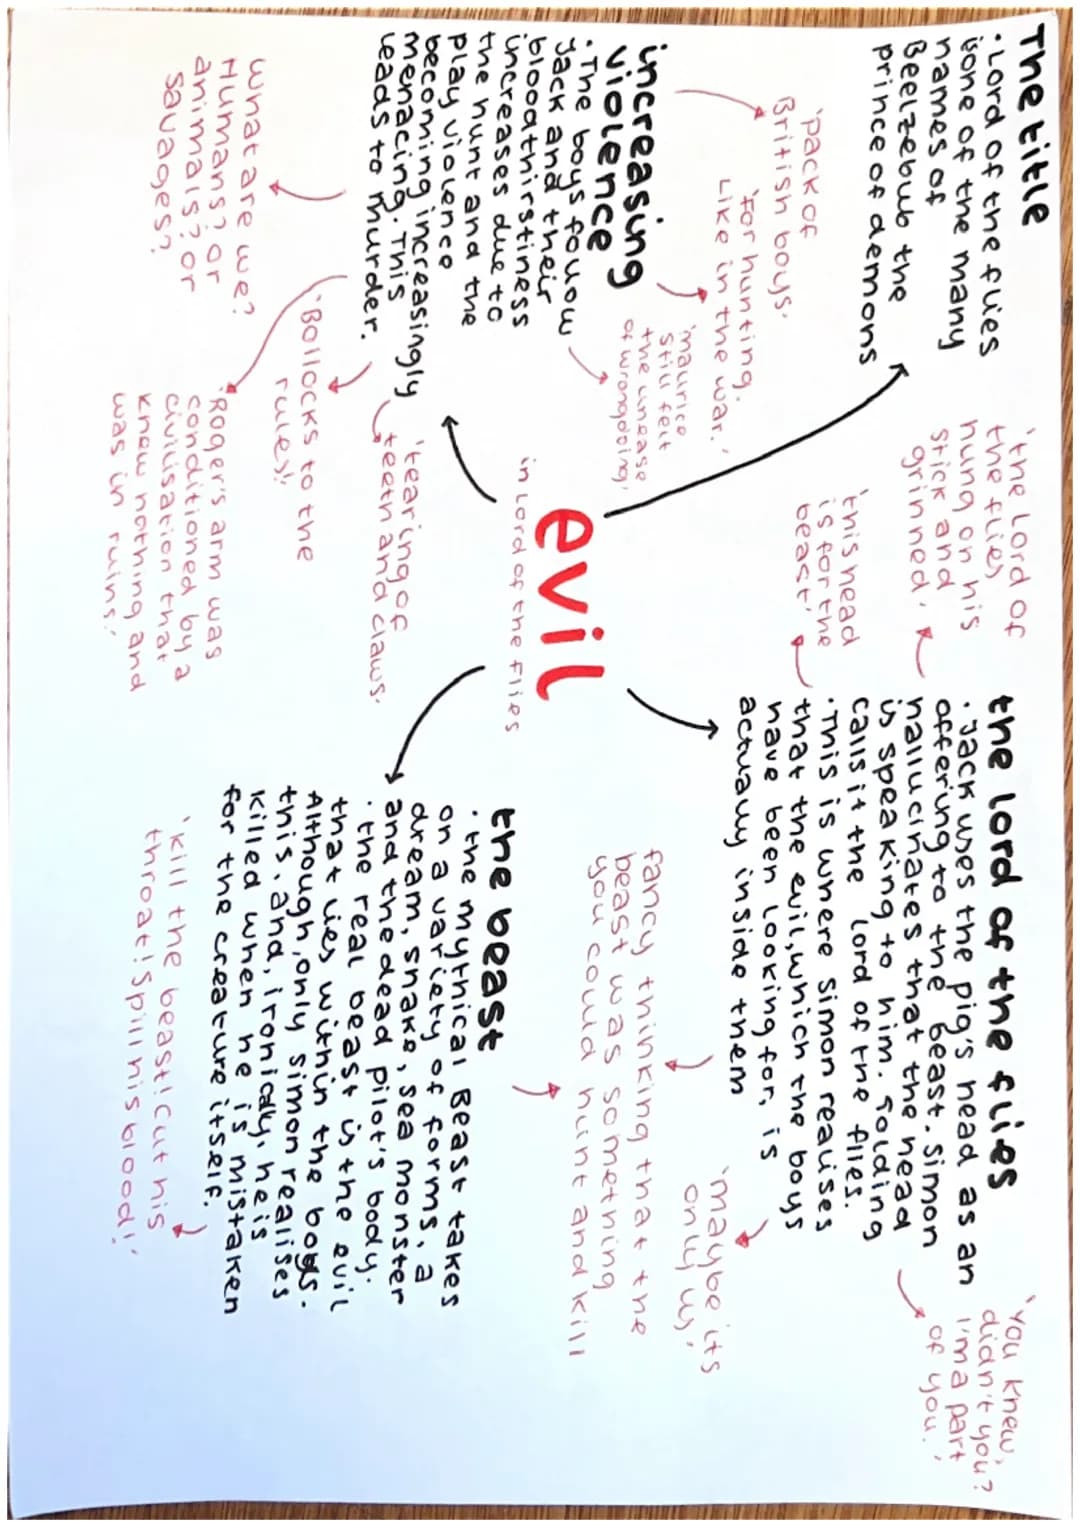 The title
· Lord of the flies
is one of the many
names of
Beelzebub the
prince of demons
'the Lord of
the flies
hung on his
stick and
grinned.'
'this head
is for the
beast.'
the lord of the flies
· Jack uses the pig's head as an
offering to the beast. Simon
hallucinates that the head
is speaking to him. Golding
calls it the Lord of the flies.
· This is where Simon realises
that the evil, which the boys
have been looking for, is
actually inside them
'You knew,
didn't you?
I'm a part
of you.'
'maybe it's
only us.'
fancy thinking that the
beast was something
you could hunt and kill
evil
in Lord of the Flies
increasing
violence
· The boys follow
Jack and their
bloodthirstiness
increases due to
the hunt and the
play violence
becoming increasingly
menacing. This
leads to murder.
'pack of
British boys.
'for hunting.
Like in the war.'
'maurice
still felt
the unease
of wrongdoing'
'tearing of
teeth and claws.
'Bollocks to the
rules!'
'Roger's arm was
conditioned by a
civilisation that
knew nothing and
was in ruins.'
What are we?
Humans? or
animals? or
savages?
the beast
· the mythical Beast takes
on a variety of forms, a
dream, snake, sea monster
and the dead pilot's body.
· the real beast is the evil
that lies within the boys.
Although, only simon realises
this, and, ironically, he is
killed when he is mistaken
for the creature itself.
'kill the beast! cut his
throat! spill his blood!'